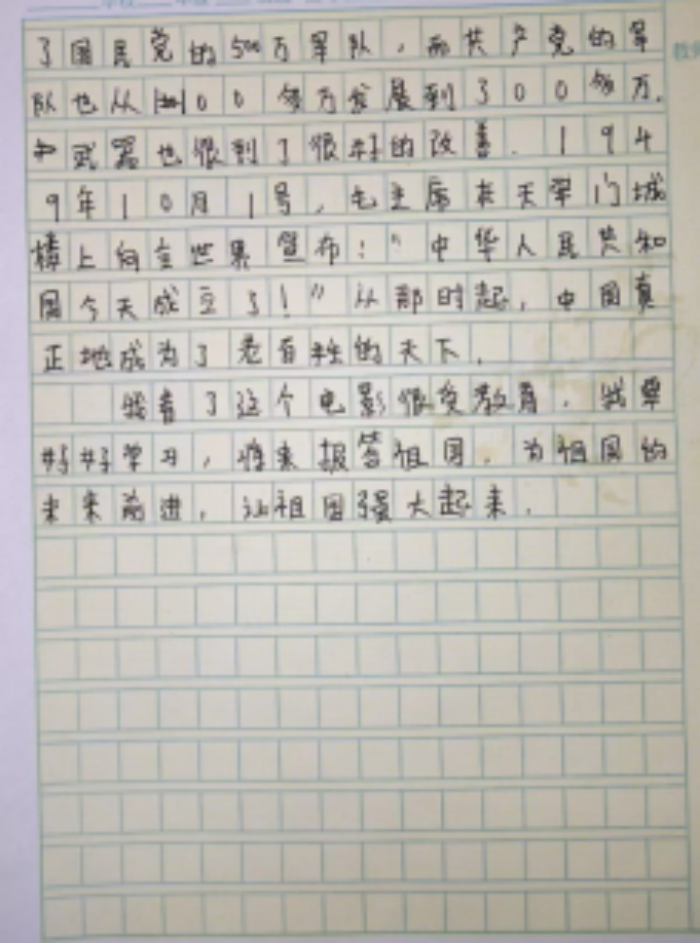 了国民党的500万军队,而共产党的军
队也从100多万发展到300多万.
武器也得到了很好的改善.194
9年10月1号,毛主席在天安门城
楼上向全世界宣布:“中华人民共和
国今天成立了!”从那时起,中国真
正地成为了老百姓的天下.
我看了这个电影很受教育.我要
好好学习,将来报答祖国.为祖国的
未来前进,让祖国强大起来.